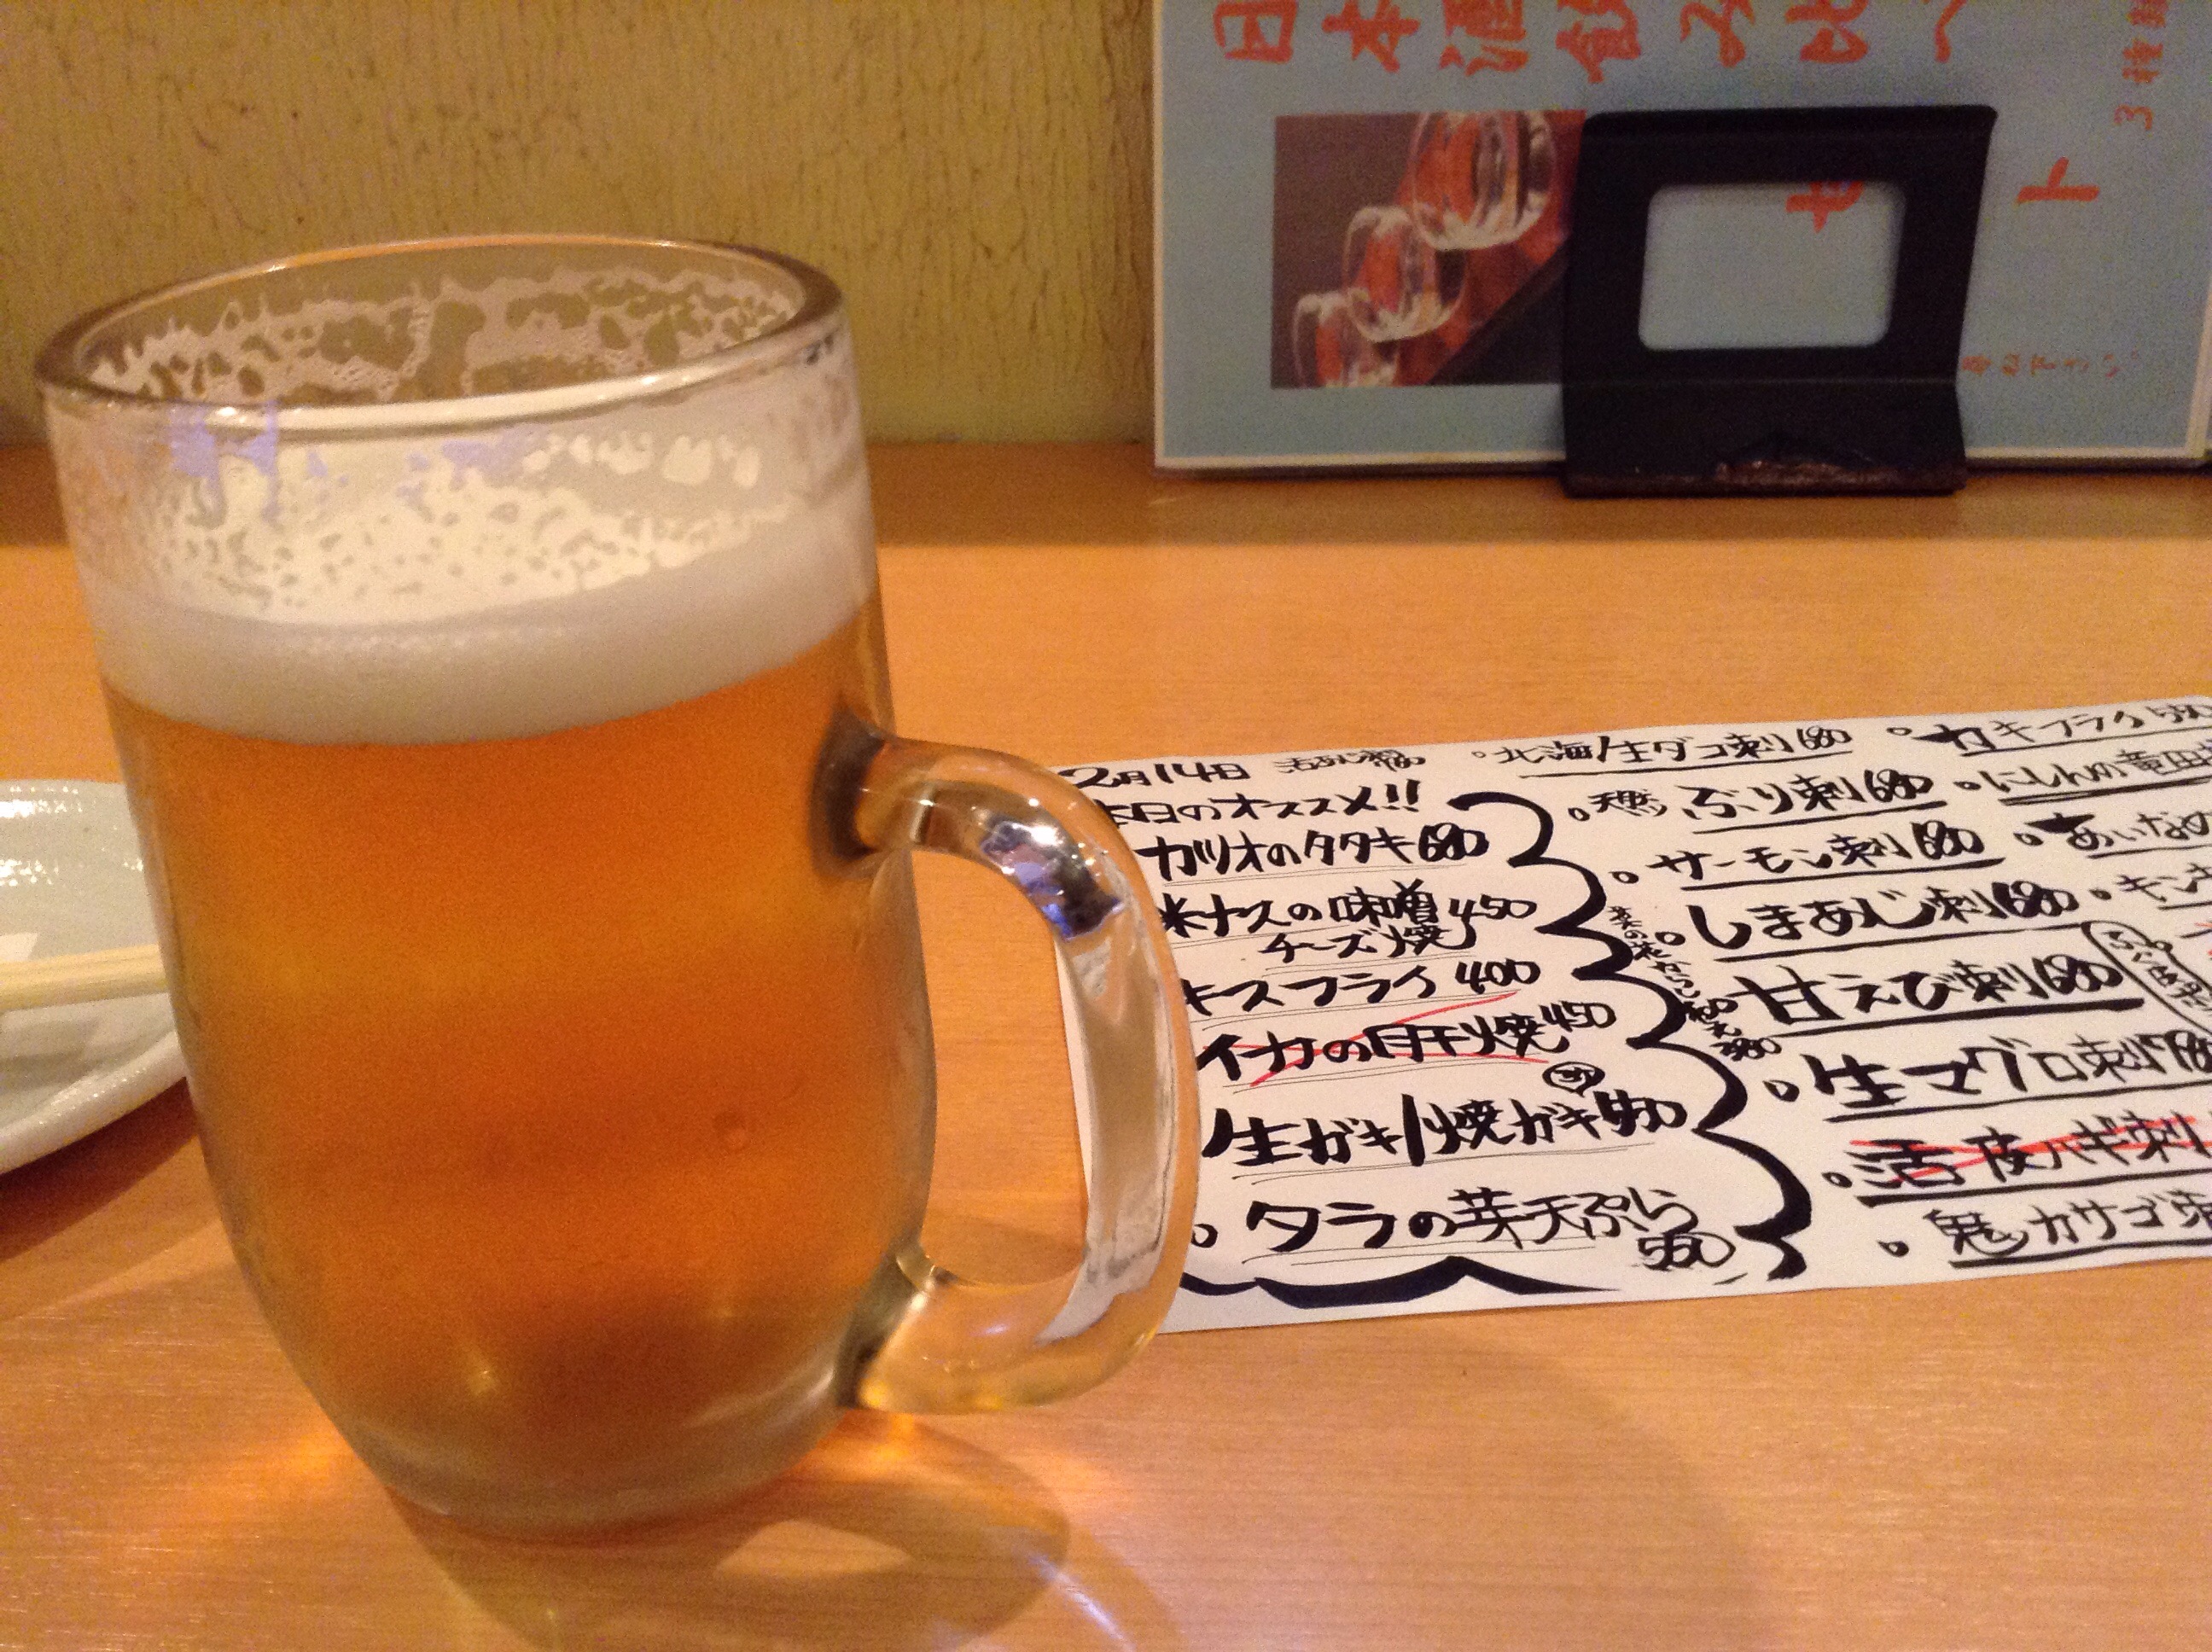 日本酒飲み比べ
セット
3種類
2月14日
本日のオススメ!!
カツオのタタキ 680
米ナスの味噌 450
チーズ焼
キスフライ 400
イカの肝焼 450
生ガキ/焼ガキ
タラの芽天ぷら
550
北海生ダコ刺 680
天然ぶり刺 680
サーモン刺 680
しまあじ刺 680
甘えび刺 680
生マグロ刺 780
活皮ハギ刺
鬼カサゴ刺
カキフライ 550
にしんの竜田
あいなめ
キンキ